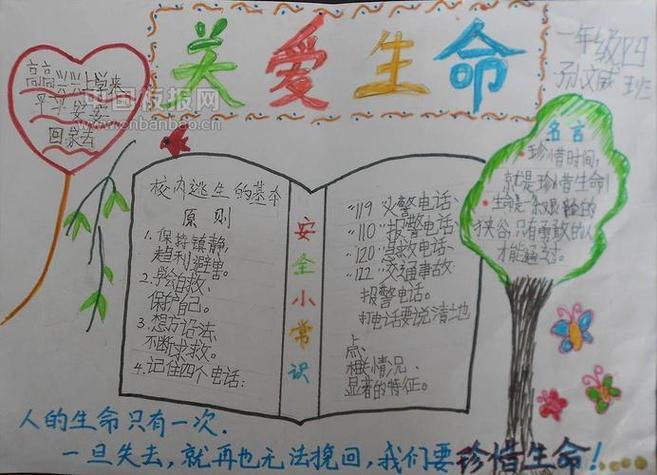 关爱生命
一年级四班
孙文威
高高兴兴上学来
平平安安
回家去
中国板报网
www.cnbanbao.cn
校内逃生的基本
原则
1.保持镇静,
趋利避害。
2.学会自救、
保护自己。
3.想方设法、
不断求救。
4.记住四个电话:
安全小常识
"119"火警电话、
"110"报警电话、
"120"急救电话、
"122"交通事故
报警电话。
打电话要说清地
点、
相关情况、
显著的特征。
名言
珍惜时间,
就是珍惜生命!
生命是一条艰险的
狭谷,只有勇敢的人
才能通过。
人的生命只有一次.
一旦失去,就再也无法挽回,我们要珍惜生命!